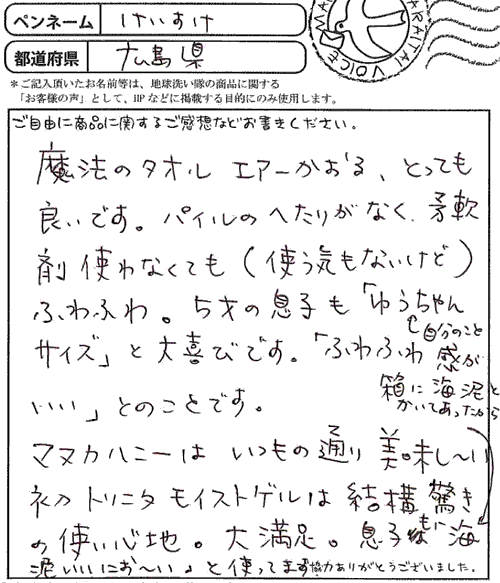 ペンネーム けいすけ
都道府県 広島県
WARATAI VOICE
＊ご記入頂いたお名前等は、地球洗い隊の商品に関する
「お客様の声」として、HPなどに掲載する目的にのみ使用します。
ご自由に商品に関するご感想などお書きください。
魔法のタオル エアーかおる、とっても
良いです。パイルのへたりがなく、柔軟
剤使わなくても(使う気もないけど)
ふわふわ。5才の息子も「ゆうちゃん
自分のこと
サイズ」と大喜びです。「ふわふわ感が
いい」とのことです。
箱に海泥と
かいてあったから
マヌカハニーはいつもの通り美味し〜い
初トリニタモイストゲルは結構驚き
の使い心地。大満足。息子にも海
泥いいにお〜い。と使ってます
協力ありがとうございました。